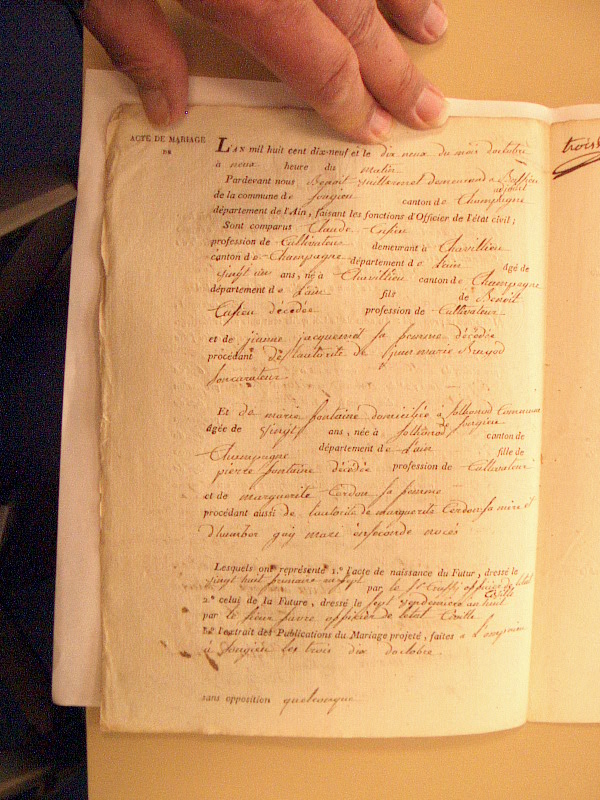 ACTE DE MARIAGE
DE
L'AN mil huit cent dix-neuf et le dix neuf du mois doctobre
à neuf heure du matin
Pardevant nous Benoit guillermet demeurant a
adjoint
de la commune de Songieu canton de Champagne
département de l'Ain, faisant les fonctions d'Officier de l'état civil;
Sont comparus Claude
profession de Cultivateur demeurant à Chavillieu
canton de Champagne département de l'ain âgé de
vingt un ans, né à Chavillieu canton de Champagne
département de l'ain fils de Benoit
décédée profession de Cultivateur
et de jeanne jacquemet sa femme décédée
procédant de lautorité de jean marie
Son curateur
Et de marie fontaine domiciliée a Sothonod Commune
Songieu
âgée de vingt ans, née à Sothonod canton de
Champagne département de l'ain fille de
pierre fontaine décédée profession de Cultivateur
et de marguerite Cerdon sa femme
procédant aussi de lautorité de marguerite Cerdon sa mere et
dhumbor gay mari en seconde noces
Lesquels ont représenté 1.° l'acte de naissance du Futur, dressé le
vingt huit frimaire an sept par le Sr officier de létat
Civille
2.° celui de la Future, dressé le sept vendemiere an huit
par le Sieur favre officier de létat Civille
Et l'extrait des Publications du Mariage projeté, faites a
à Songieu les trois dix doctobre
sans opposition quelconque
trois